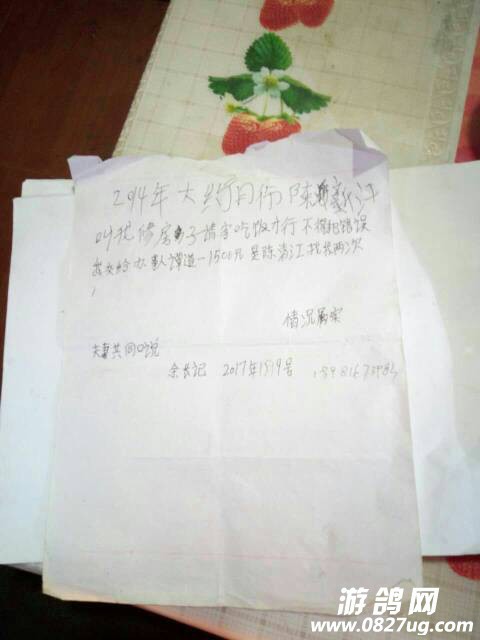 2014年大约月份陈新江
叫我修房子请客吃饭才行不得犯错误
我女给办事人谭道一1500元是陈清江找我两次
情况属实
夫妻共同口说
余长记 2017年1月19号
游鸽网
www.0827ug.com